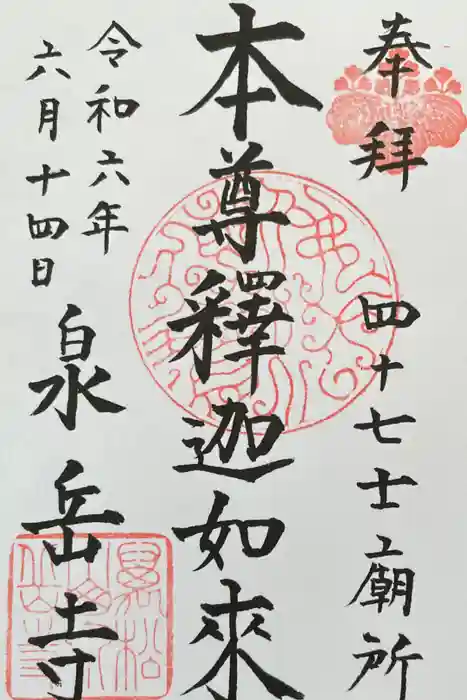 奉拝
四十七士廟所
本尊釋迦如來
令和六年
六月十四日
泉岳寺